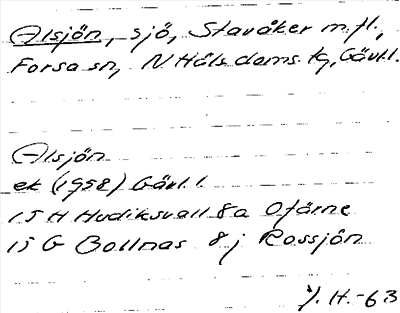 Alsjön, sjö, Stavåker m.fl.,
Forsa sn, N Hälsdoms. tg, Gävl.l.
Alsjön
ek (1958) Gävl.l.
15 H Hudiksvall 8a Ofärne
15 G Bollnäs 8j Rossjön
H.-63